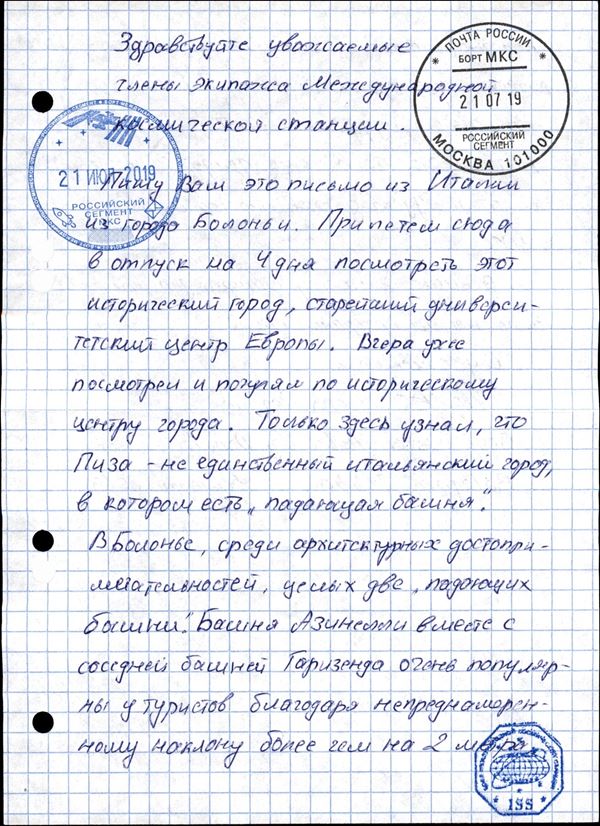 Здравствуйте уважаемые
члены экипажа Международной
космической станции.
Пишу Вам это письмо из Италии
из города Болоньи. Прилетел сюда
в отпуск на 4 дня посмотреть этот
исторический город, старейший универси-
тетский центр Европы. Вчера уже
посмотрел и погулял по историческому
центру города. Только здесь узнал, что
Пиза - не единственный итальянский город,
в котором есть „падающая башня".
В Болонье, среди архитектурных достопри-
мечательностей, целых две „падающих
башни". Башня Азинелли вместе с
соседней башней Гаризенда очень популяр-
ны у туристов благодаря непреднамерен-
ному наклону более чем на 2 метра
ПОЧТА РОССИИ
БОРТ МКС
21 07 19
РОССИЙСКИЙ
СЕГМЕНТ
МОСКВА 101000
21 ИЮЛ 2019
РОССИЙСКИЙ
СЕГМЕНТ
МКС
ISS